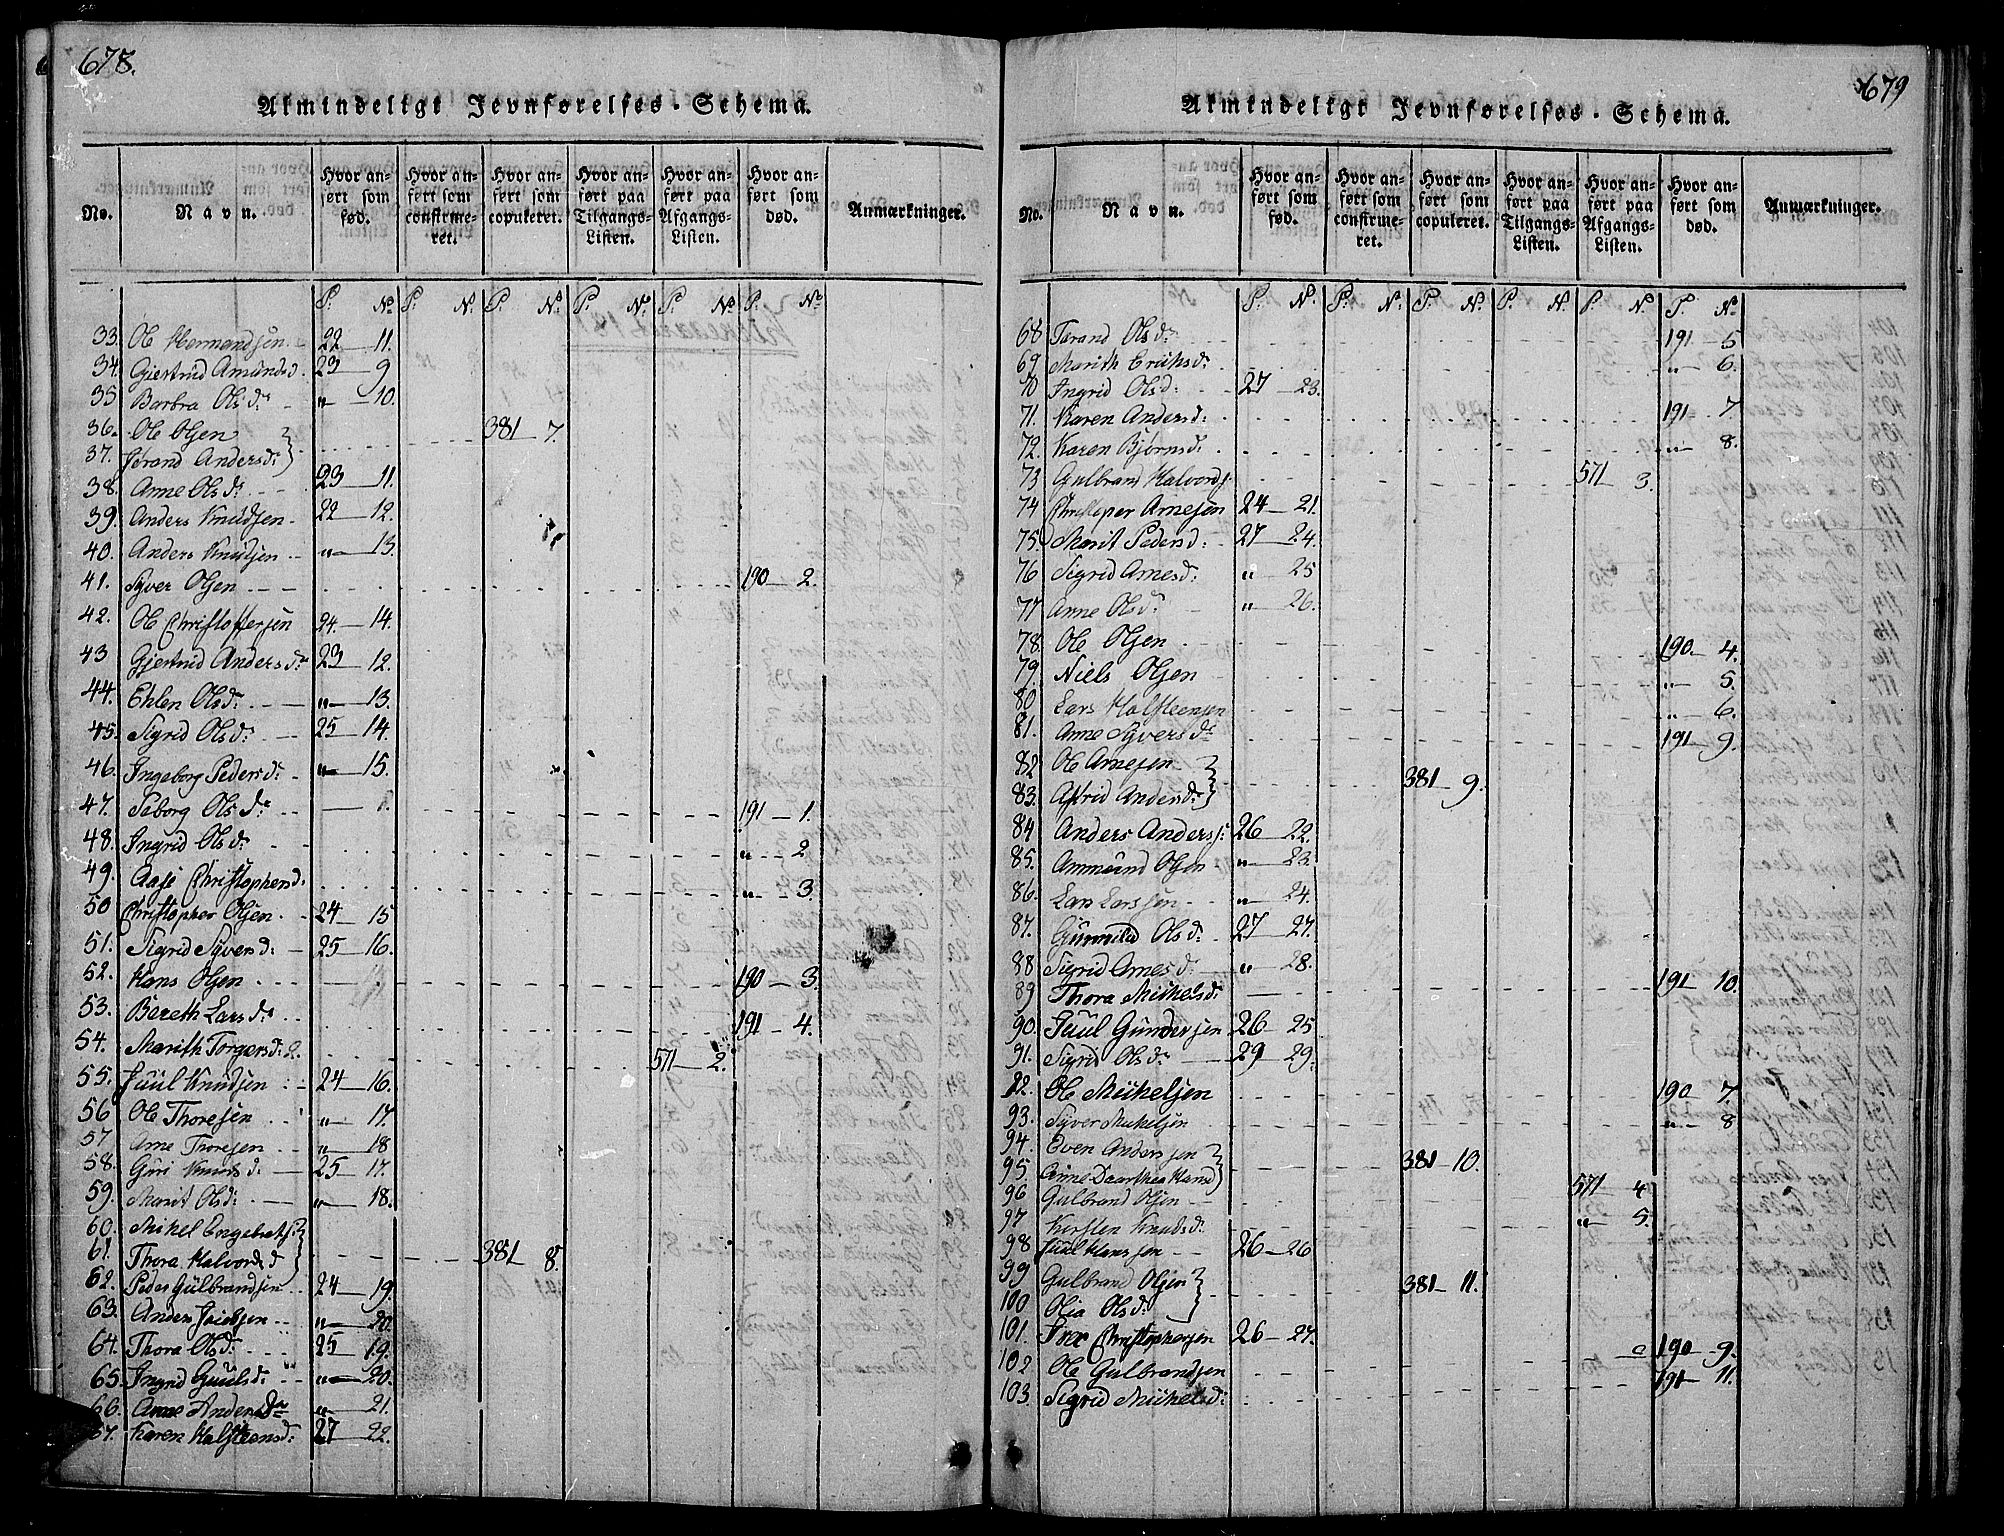 678.
Almindeligt Jevnførelses-Schema.
No.
Navn.
Hvor an-
ført som
fød.
Hvor an-
ført som
confirme-
ret.
Hvor an-
ført som
copuleret.
Hvor an-
ført paa
Tilgangs-
Listen.
Hvor an-
ført paa
Afgangs-
Listen.
Hvor an-
ført som
død.
Anmærkninger.
P: No P: N: P: No P: No P: No P: No
33. Ole Hermendsen 22 11.
34. Giertrud Amundsd. 23 9
35 Barbra Olsdr „ 10.
36. Ole Olsen 381 7.
37. Jørand Andersdr
38. Anne Olsdr 23 11.
39. Anders Knudsen 22 12.
40. Anders Knudsen „ 13.
41. Syver Olsen 190 2.
42. Ole Christoffersen 24 14.
43 Gjertrud Andersdr 23 12.
44. Ehlen Olsdr „ 13.
45. Sigrid Olsdr 25 14.
46. Ingeborg Pedersdr „ 15.
47. Siborg Olsdr 191 1.
48. Ingrid Olsdr „ 2
49. Aase Christophersd. „ 3
50 Christopher Olsen 24 15
51. Sigrid Syversd: 25 16.
52. Hans Olsen 190 3.
53. Bereth Larsdr 191 4.
54. Marith Torgersd: 571 2.
55. Juul Knudsen 24 16.
56 Ole Thoresen „ 17.
57 Arne Thoresen „ 18
58. Guri Knudsd: 25 17.
59. Marit Olsd: „ 18.
60. Mikel Engebrets:
61. Thora Halvorsd 381 8.
62. Peder Gulbrandsen 24 19.
63. Anders Jacobsen „ 20.
64. Thora Olsd: 25 19.
65. Ingrid Guulsd: „ 20.
66. Anne Andersdr „ 21.
67. Karen Halsteensd: 27 22.
679
Almindeligt Jevnførelses-Schema.
No.
Navn.
Hvor an-
ført som
fød.
Hvor an-
ført som
confirme-
ret.
Hvor an-
ført som
copuleret.
Hvor an-
ført paa
Tilgangs-
Listen.
Hvor an-
ført paa
Afgangs-
Listen.
Hvor an-
ført som
død.
Anmærkninger.
P: N: P: N: P: N: P: N: P: N: P: No
68 Tarand Olsdr 191 5
69 Marith Eriksd: „ 6.
70 Ingrid Olsd: 27 23.
71. Karen Andersd: 191 7
72. Karen Bjørnsd: „ 8.
73 Gulbrand Halvords: 571 3.
74 Christoper Arnesen 24 21.
75. Marit Pedersd: 27 24.
76 Sigrid Arnesd: „ 25
77 Anne Olsdr „ 26.
78. Ole Olsen 190 4.
79. Niels Olsen „ 5.
80 Lars Halsteensen „ 6.
81. Anne Syversdr 191 9.
82 Ole Arnesen
83. Astrid Andersdr 381 9.
84 Anders Anders: 26 22.
85. Ammund Olsen „ 23.
86. Lars Larssen „ 24.
87. Gunnild Olsd: 27 27.
88 Sigrid Arnesd: „ 28.
89 Thora Mikelsdr 191 10.
90. Juul Gundersen 26 25
91. Sigrid Olsdr 29 29.
92. Ole Mikkelsen 190 7.
93. Syver Mikelsen „ 8
94. Even Anderssen
95. Anne Daarthea Hansd 381 10.
96 Gulbrand Olsen 571 4.
97 Kirsten Knudsd: „ 5.
98 Juul Hanssen 26 26
99 Gulbrand Olsen 381 11.
100 Olia Olsd:
101. Iver Christophersen 26 27.
102 Ole Gulbrandsen 190 9.
103. Sigrid Mikkelsd: 191 11.